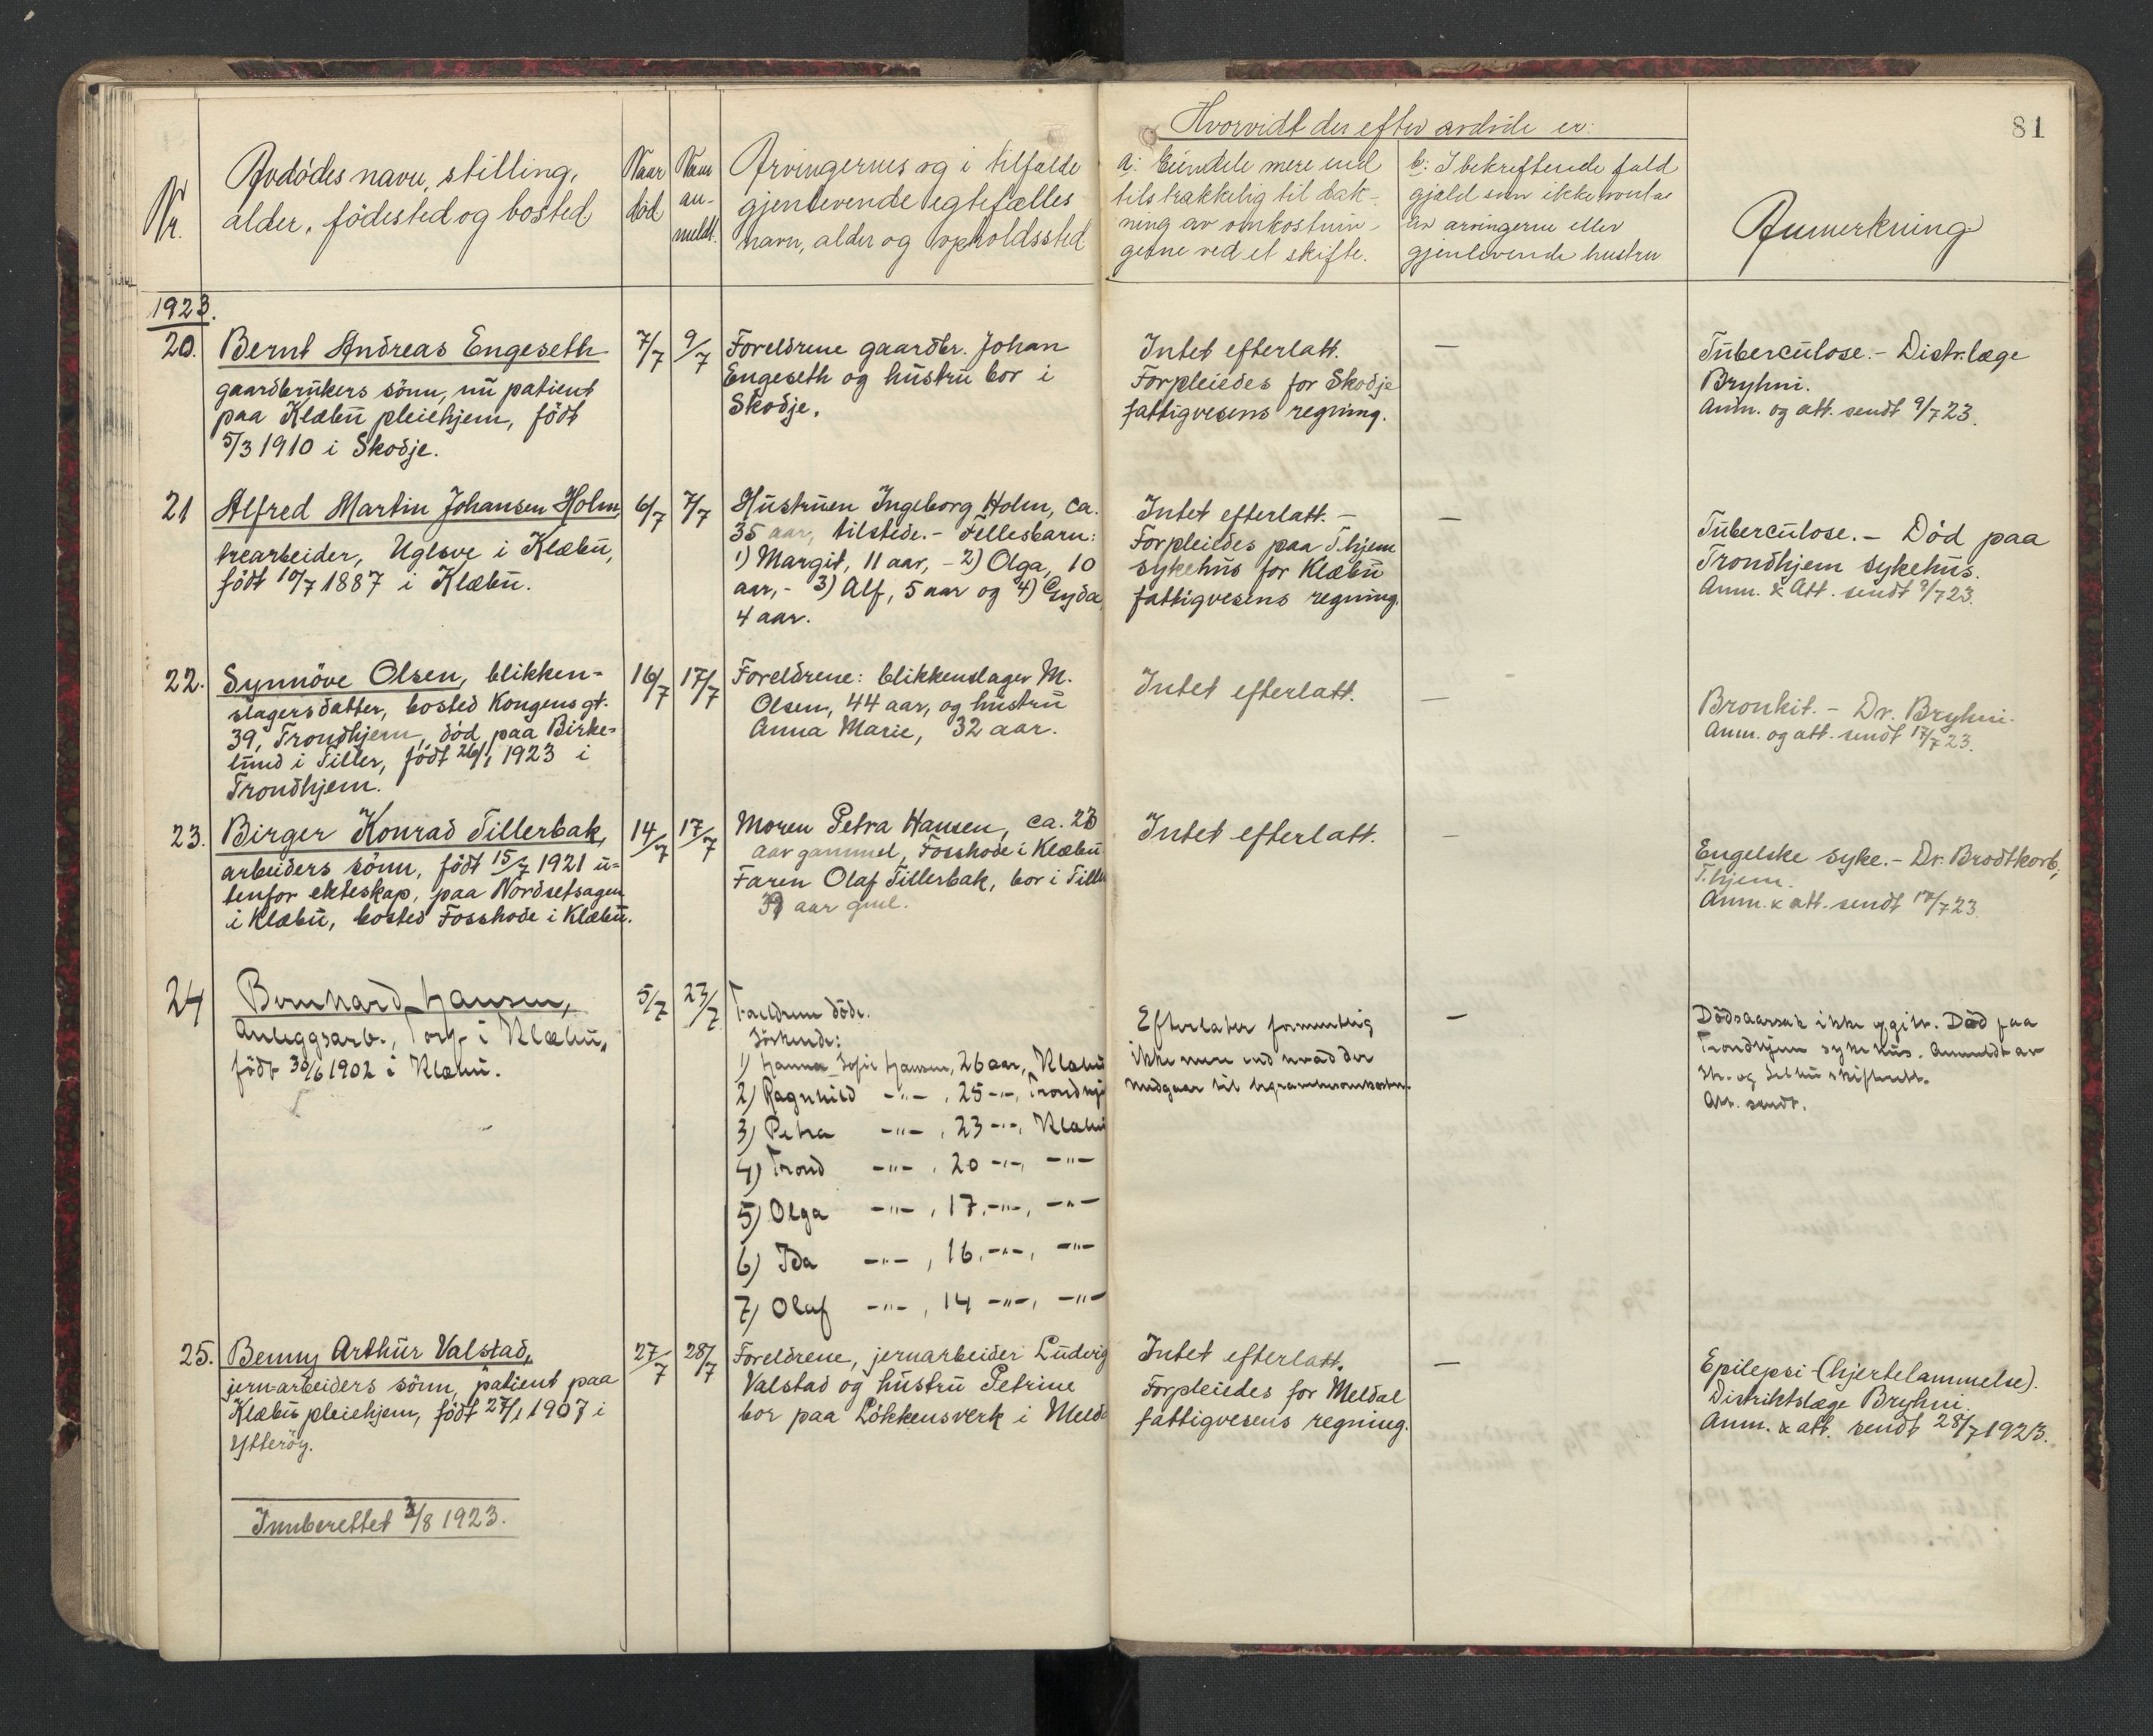 81
Nr.
Avdödes navn, stilling,
alder, födested og bosted
Naar
död
Naar
an-
meldt.
Arvingernes og i tilfælde
gjenlevende egtefælles
navn, alder og opholdssted
Hvorvidt der efter avdöde er:
a: Eiendele mere end
tilstrækkelig til dæk-
ning av omkostnin-
gerne ved et skifte.
b: I bekreftende fald
gjæld som ikke
av arvingerne eller
gjenlevende hustru
Anmerkning
1923.
20.
Bernt Andreas Engeseth
gaardbrukers sönn, nu patient
paa Klæbu pleiehjem, födt
5/3 1910 i Skodje.
7/7
9/7
Foreldrene gaardbr. Johan
Engeseth og hustru bor i
Skodje.
Intet efterlatt.
Forpleiedes for Skodje
fattigvesens regning.
—
Tuberculose. - Distr.læge
Bryhni.
Anm. og att. sendt 9/7 23.
21
Alfred Martin Johansen Holm
trearbeider, Ugleve i Klæbu,
födt 10/7 1887 i Klæbu.
6/7
7/7
Hustruen Ingeborg Holm, ca.
35 aar, tilstede. - Fellesbarn:
1) Margit, 11 aar, - 2) Olga, 10
aar, - 3) Alf, 5 aar og 4) Gyda
4 aar.
Intet efterlatt. -
Forpleiedes paa T.hjem
sykehus for Klæbu
fattigvesens regning.
—
Tuberculose. - Död paa
Trondhjem sykehus.
Anm. & Att. sendt 9/7 23.
22.
Synnöve Olsen, blikken-
slagers datter, bosted Kongens gt.
39, Trondhjem, död paa Birke-
lund i Tiller, födt 26/1 1923 i
Trondhjem.
16/7
17/7
Foreldrene: blikkenslager M.
Olsen, 44 aar, og hustru
Anna Marie, 32 aar.
Intet efterlatt.
—
Bronkit. - Dr. Bryhni.
Anm. og att. sendt 17/7 23.
23.
Birger Konrad Tillerbak,
arbeiders sönn, födt 15/7 1921 u-
tenfor ekteskap, paa Nordsetsagen
i Klæbu, bosted Fosshode i Klæbu.
14/7
17/7
Moren Petra Hansen, ca. 23
aar gammel, Fosshode i Klæbu
Faren Olaf Tillerbak, bor i Tille
aar gml.
Intet efterlatt.
—
Engelske syke. - Dr. Brodtkorb,
T.hjem.
Anm. & att. sendt 17/7 23.
24
Bernhard Hansen,
Anleggsarb., i Klæbu,
födt 30/6 1902 i Klæbu.
5/7
23/7
Foreldrene döde.
Söskende:
1) Hanna Sofie Hansen, 26 aar, Klæbu
2) Ragnhild -"- , 25 -"-, Trondhj
3) Petra -"- , 23 -"-, Klæbu
4) Trond -"- , 20 -"-, -"-
5) Olga -"- , 17 -"-, -"-
6) Ida -"- , 16 -"-, -"-
7) Olaf -"- , 14 -"-, -"-
Efterlater formentlig
ikke mere end hvad der
medgaar til begravelsesomkostn.
—
Dödsaarsak ikke opgitt. Död paa
Trondhjem sykehus. Anmeldt av
Str. og Selbu skifterett.
Att. sendt.
25.
Benny Arthur Valstad,
jern-arbeiders sönn, patient paa
Klæbu pleiehjem, födt 27/1 1907 i
Ytteröy.
27/7
28/7
Foreldrene, jernarbeider Ludvig
Valstad og hustru Petrine
bor paa Lökkensverk i Melda
Intet efterlatt.
Forpleiedes for Meldal
fattigvesens regning.
—
Epilepsi (hjertelammelse).
Distriktslæge Bryhni.
Anm. & att. sendt 28/7 1923.
Innberettet 3/8 1923.